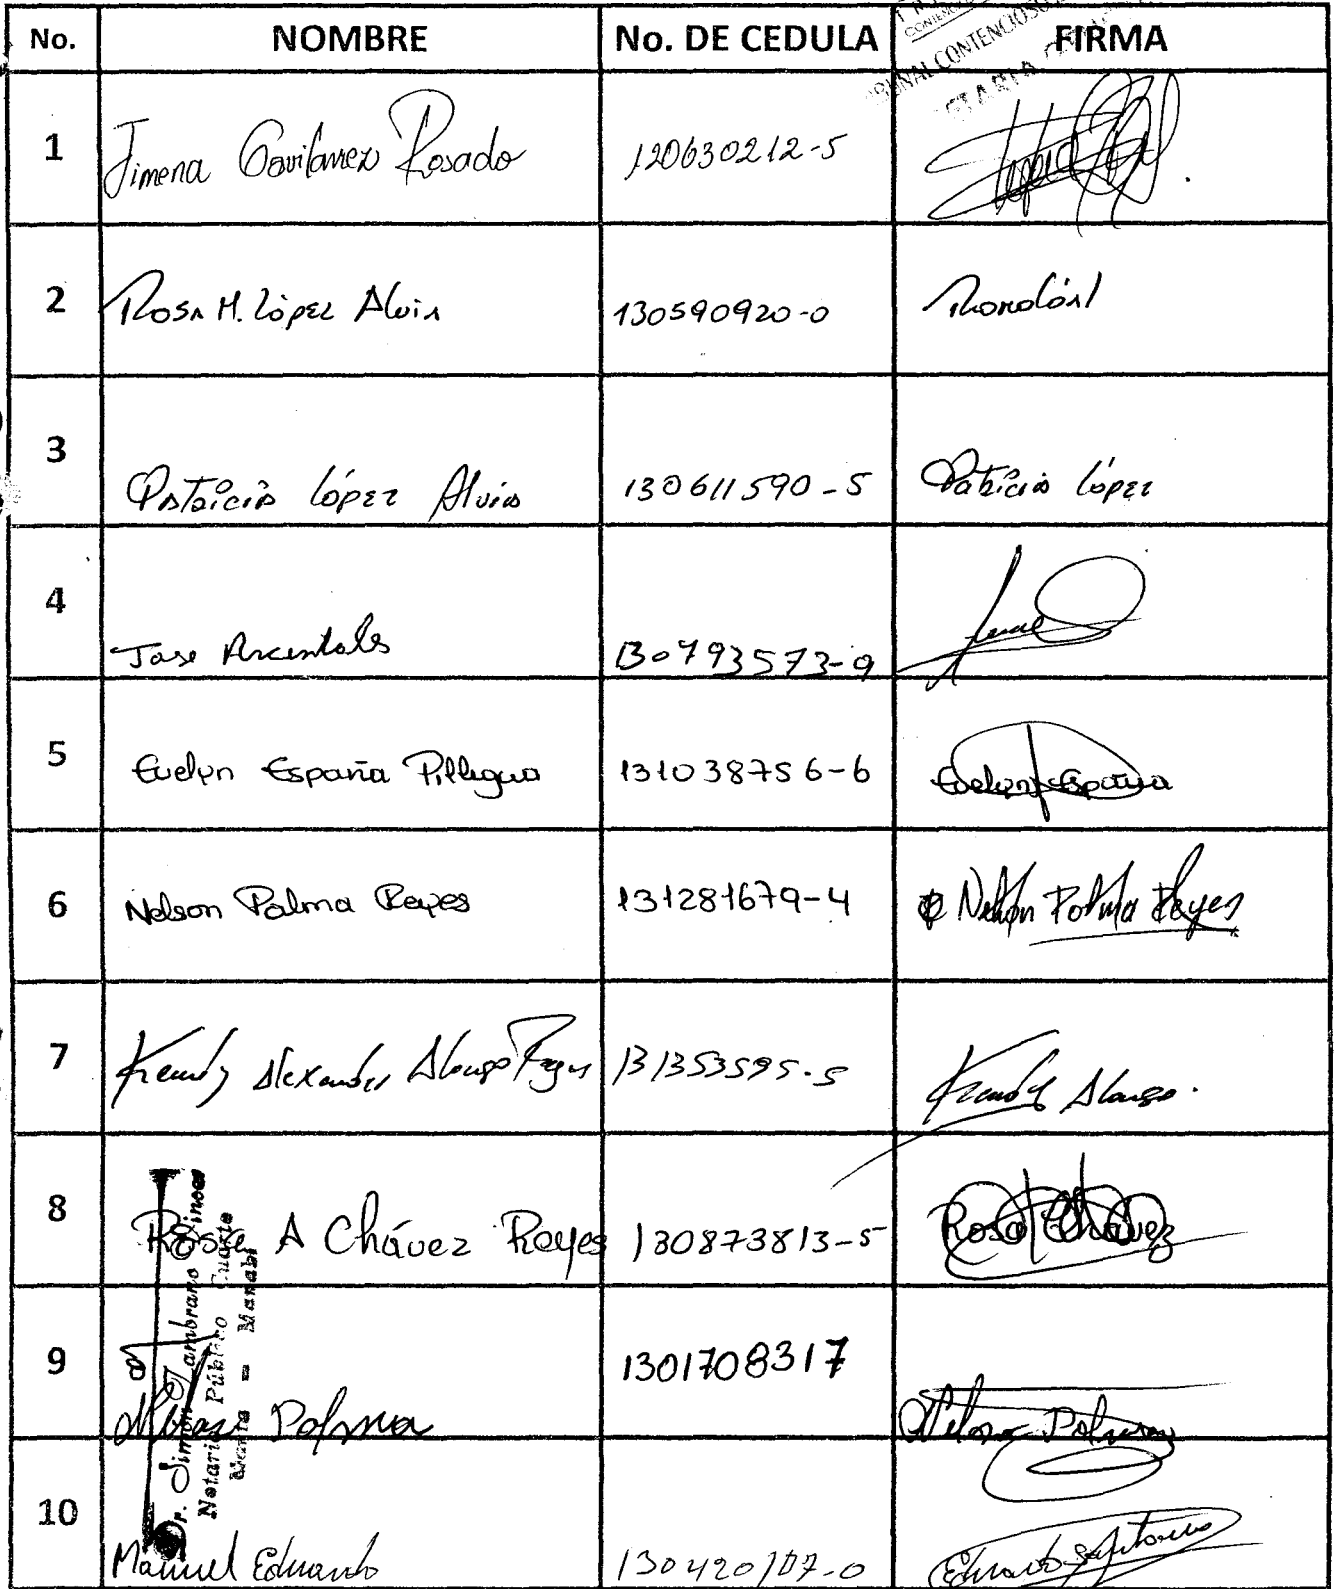 No. NOMBRE No. DE CEDULA FIRMA
CONTENCIOSO
1 Jimena Gavilanez Rosado 120630212-5
2 Rosa M. López Alvia 130590920-0
3 Patricia López Alvia 130611590-5 Patricia López
4 Jose Arcentales 130793573-9
5 Evelyn España Pillagua 131038756-6 Evelyn España
6 Nelson Palma Reyes 131281679-4 Nelson Palma Reyes
7 Alexander Alonzo 131353595-5 Alonzo.
8 Rosa A Chávez Reyes 130873813-5 Rosa Chávez
9 Palma 1301708317 Palma
10 Manuel Eduardo 130420107-0 Eduardo
Dr. Simón Zambrano
Notario Público Cuarto
Manta - Manabí